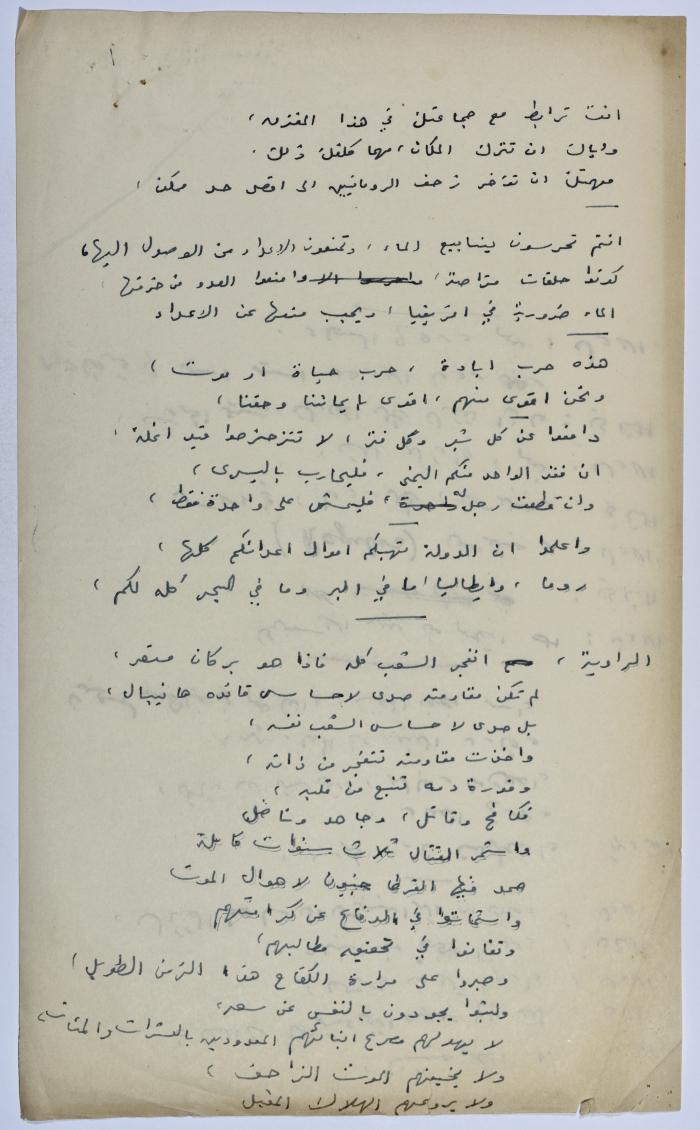 ١
انت ترابط مع جماعتك في هذا المفترق،
واياك ان تترك المكان، مهما كلفك ذلك.
مهمتك ان تؤخر زحف الرومانيين الى اقصى حد ممكن،
انتم تحرسون ينابيع الماء، وتمنعون الاعداء من الوصول اليها،
كونوا حلقات متراصة، وامنعوا العدو من خرقها،
الماء ضرورية في افريقيا، ويجب منعها عن الاعداء
هذه حرب ابادة، حرب حياة او موت،
ونحن اقوى منهم، اقوى بايماننا وحقنا،
دافعوا عن كل شبر وكل فتر، لا تتزحزحوا قيد انملة،
ان فقد الواحد منكم اليمنى، فليحارب باليسرى،
وان قطعت رجل له، فليمش على واحدة فقط،
واعلموا ان الدولة تهبكم اموال اعدائكم كلها،
روما، وايطاليا، ما في البر وما في البحر، كله لكم،
الراوية، انفجر الشعب كله فاذا هو بركان مستعر،
لم تكن مقاومته صدى لاحساس قائده هانيبال،
بل صدى لاحساس الشعب نفسه،
واخذت مقاومته تتفجر من ذاته،
وفورة دمه تنبع من قلبه،
فكافح وقاتل، وجاهد وناضل،
واستمر القتال ثلاث سنوات كاملة
صمد فيها القرطاجنيون لاهوال الموت
واستماتوا في الدفاع عن كرامتهم
وتفانوا في تحقيق مطالبهم،
وصبروا على مرارة الكفاح هذا الزمن الطويل،
ولبثوا يجودون بالنفس عن سعة،
لا يهولهم مصرع ابنائهم المعدودين بالعشرات والمئات،
ولا يخيفهم الموت الزاحف،
ولا يروعهم الهلاك المقبل